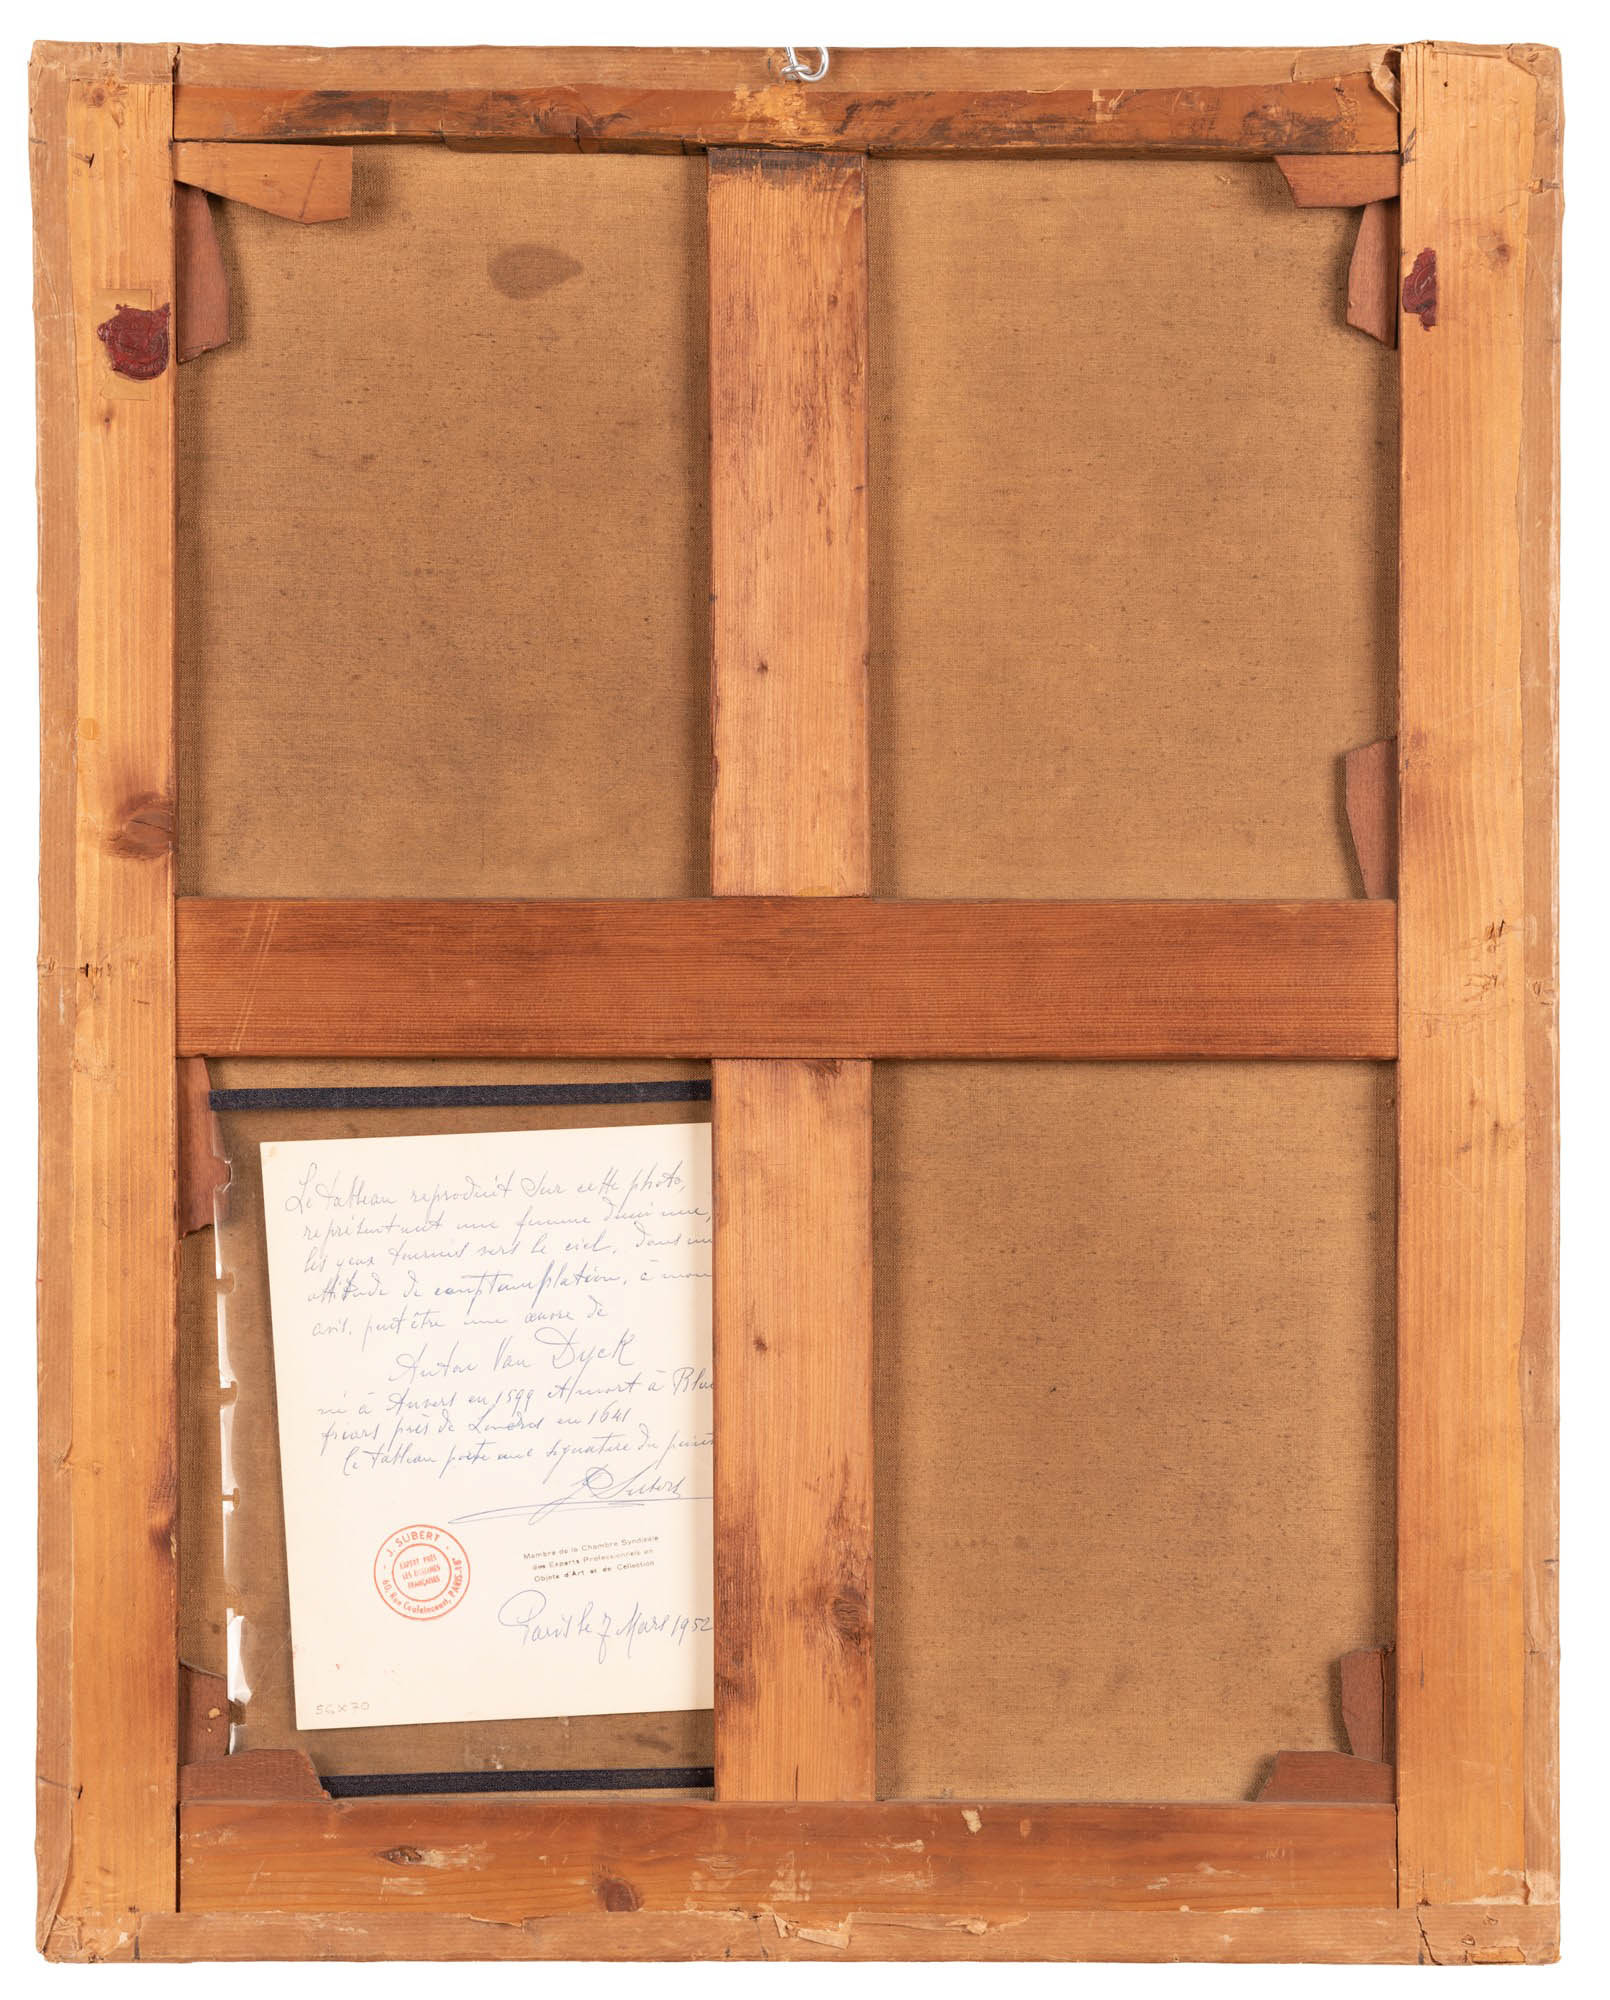 Le tableau reproduit sur cette photo,
représentant une femme demi nue,
les yeux tournés vers le ciel, dans un
attitude de comptamplation, à mon
avis, peut être une œuvre de
Anton Van Dyck
né à Anvers en 1599 et mort à Blac
friars près de Londres en 1641
le tableau porte une signature du peint
J Subert
J. SUBERT
EXPERT PRÈS
LES DOUANES
FRANÇAISES
60, Rue Caulaincourt, PARIS-18e
Membre de la Chambre Syndicale
des Experts Professionnels en
Objets d'Art et de Collection
Paris le 7 Mars 1952
56x70